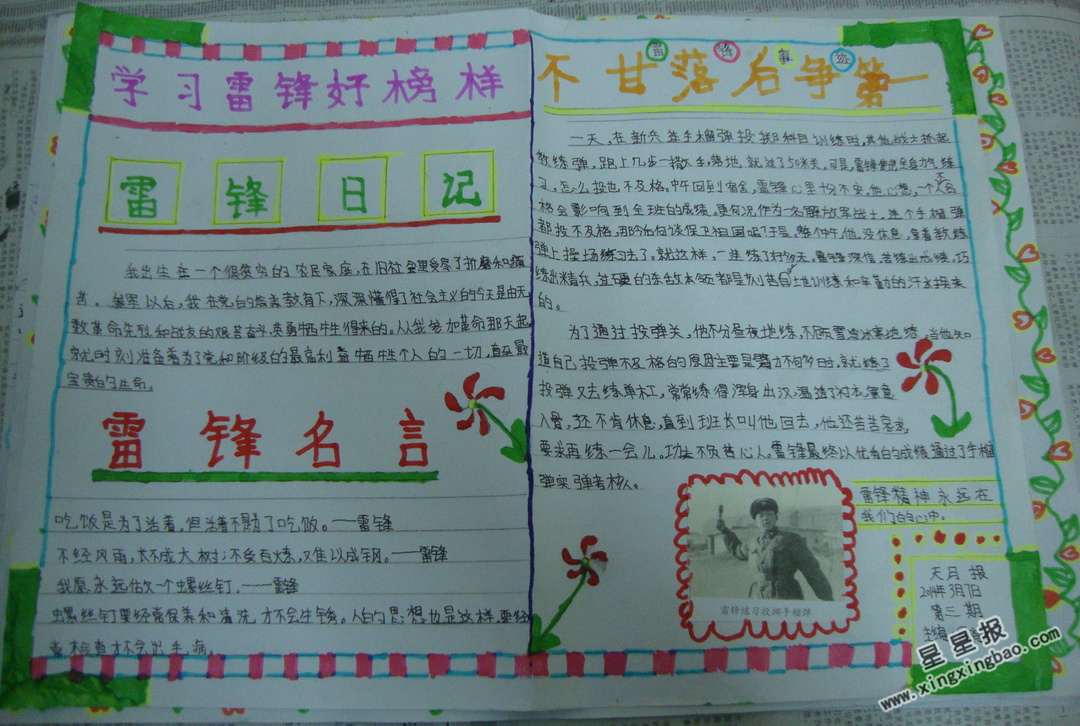 学习雷锋好榜样
雷锋日记
我出生在一个很贫穷的农民家庭，在旧社会里受尽了折磨和痛
苦。参军以后，我在党的培养教育下，深深懂得了社会主义的今天是由无
数革命先烈和战友的艰苦奋斗，英勇牺牲得来的。从我参加革命那天起
就时刻准备着为了党和阶级的最高利益牺牲个人的一切，直至最
宝贵的生命。
雷锋名言
吃饭是为了活着，但活着不是为了吃饭。——雷锋
不经风雨，长不成大树；不受百炼，难以成钢。——雷锋
我愿永远做一个螺丝钉。——雷锋
螺丝钉要经常保养和清洗，才不会生锈。人的思想也是这样，要经
常检查才不会出毛病。
雷锋事迹
不甘落后争第一
一天，在新兵连手榴弹投掷科目训练时，其他战士抓起
教练弹，跑上几步一撒手落地，就过了50米关。可是，雷锋使出全身力气练
习，怎么投也不及格。中午回到宿舍，雷锋心里十分不安，他心想，一个人不
格会影响到全班的成绩，更何况作为一名解放军战士，连个手榴弹
都投不及格，那今后何谈保卫祖国呢？于是，整个中午，他没休息，拿着教练
弹上操场练习去了。就这样，一连练了好几天，雷锋深信，苦练出成绩，巧
练出精兵，过硬的杀敌本领都是刻苦的训练和辛勤的汗水换来
的。
为了通过投弹关，他不分昼夜地练，不怕雪飞冰寒地练，当他知
道自己投弹不及格的原因主要是臂力不够时，就练了
投弹又去练单杠，常常练得浑身出汗，湿透了衬衣，寒意
入骨，还不肯休息，直到班长叫他回去，他还苦苦哀求
要求再练一会儿。功夫不负苦心人。雷锋最终以优秀的成绩通过了手榴
弹实弹考核。
雷锋练习投掷手榴弹
雷锋精神永远在
我们的心中。
天月报
2014年3月7日
第三期
主编
星星报
www.xingxingbao.com